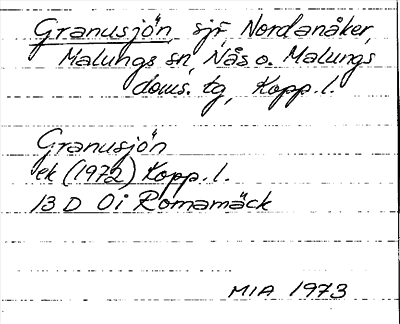 Granusjön, sjö, Nordanåker,
Malungs sn, Nås o. Malungs
doms. tg, Kopp. l.
Granusjön
ek (1972) Kopp. l.
13 D 0i Romamäck
MIA 1973